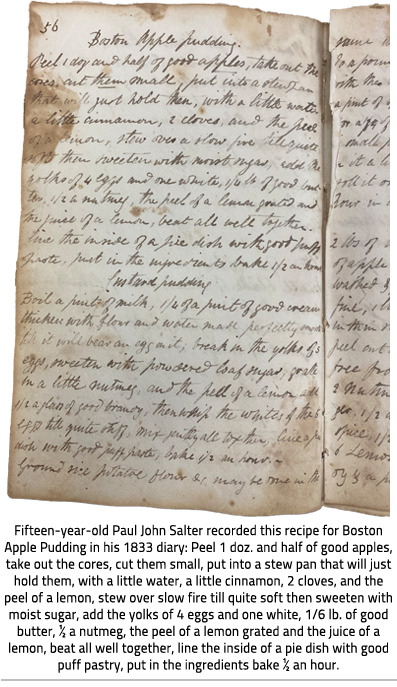 56
Boston Apple pudding.
Peel 1 doz and half of good apples, take out the
cores, cut them small, put into a stew pan
that will just hold them, with a little water
a little cinnamon, 2 cloves, and the peel
of a lemon, stew over a slow fire till quite
soft then sweeten with moist sugar, add the
yolks of 4 eggs and one white, 1/4 lb of good but-
ter, 1/2 a nutmeg, the peel of a lemon grated and
the juice of a lemon, beat all well together.
line the inside of a pie dish with good puff
paste, put in the ingredients bake 1/2 an hour
Custard pudding
Boil a pint of milk, 1/4 of a pint of good cream
thicken with flour and water made perfectly smooth
till it will bear an egg in it; break in the yolks of 5
eggs, sweeten with powdered loaf sugar, grate
in a little nutmeg, and the peel of a lemon add
1/2 a glass of good brandy, then whip the whites of the 5
eggs till quite stiff, mix gently all together, line a pie
dish with good puff paste, bake 1/2 an hour.
Ground rice potatoe flour &c may be done in the
same
a pint of
small
roll it o
hour in
2 lbs of
of apple
washed
peel
2 nutm
spice, 1/2
6 Lemo
Fifteen-year-old Paul John Salter recorded this recipe for Boston
Apple Pudding in his 1833 diary: Peel 1 doz. and half of good apples,
take out the cores, cut them small, put into a stew pan that will just
hold them, with a little water, a little cinnamon, 2 cloves, and the
peel of a lemon, stew over slow fire till quite soft then sweeten with
moist sugar, add the yolks of 4 eggs and one white, 1/6 lb. of good
butter, ½ a nutmeg, the peel of a lemon grated and the juice of a
lemon, beat all well together, line the inside of a pie dish with good
puff pastry, put in the ingredients bake ½ an hour.